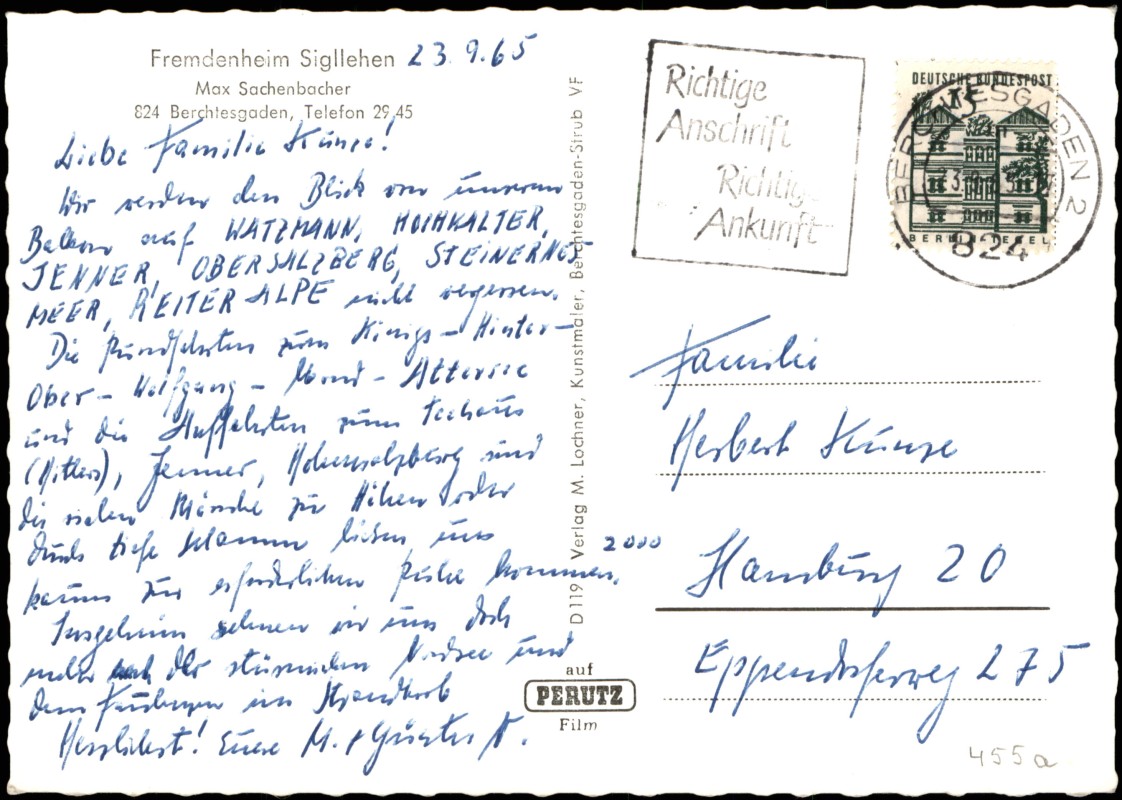 Fremdenheim Sigllehen 23.9.65
Max Sachenbacher
824 Berchtesgaden, Telefon 29 45
Liebe Familie Kunze!
Wir werden den Blick von unserem
Balkon auf WATZMANN, HOCHKALTER,
JENNER, OBERSALZBERG, STEINERNES
MEER, REITER ALPE nicht vergessen.
Die Rundfahrten zum Königs- Hinter-
Ober- Wolfgang- Mond- Attersee
und die Auffahrten zum Teehaus
(Hitlers), Jenner, Hohensalzburg und
die vielen Märsche zu Höhen oder
durch tiefe Klamme ließen uns
kaum zur erforderlichen Ruhe kommen.
Insgeheim sehnen wir uns doch
mehr nach der stürmischen Nordsee und
dem Faulenzen im Strandkorb
Herzlichst! Eure M. + Günter
D 119 Verlag M. Lochner, Kunstmaler, Berchtesgaden-Strub VF
auf
PERUTZ
Film
Richtige
Anschrift
Richtige
Ankunft
DEUTSCHE BUNDESPOST
15
BERLIN-TEGEL
BERCHTESGADEN 2
824
Familie
Herbert Kunze
2000 Hamburg 20
Eppendorferweg 275
455a